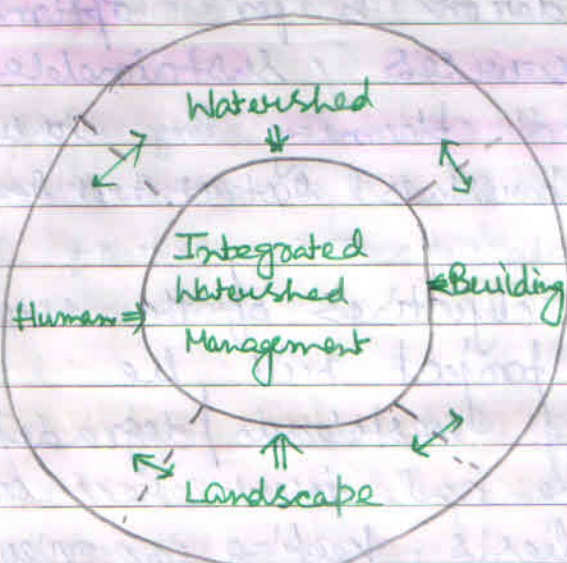 Watershed
Integrated
Watershed
Management
Human
Building
Landscape